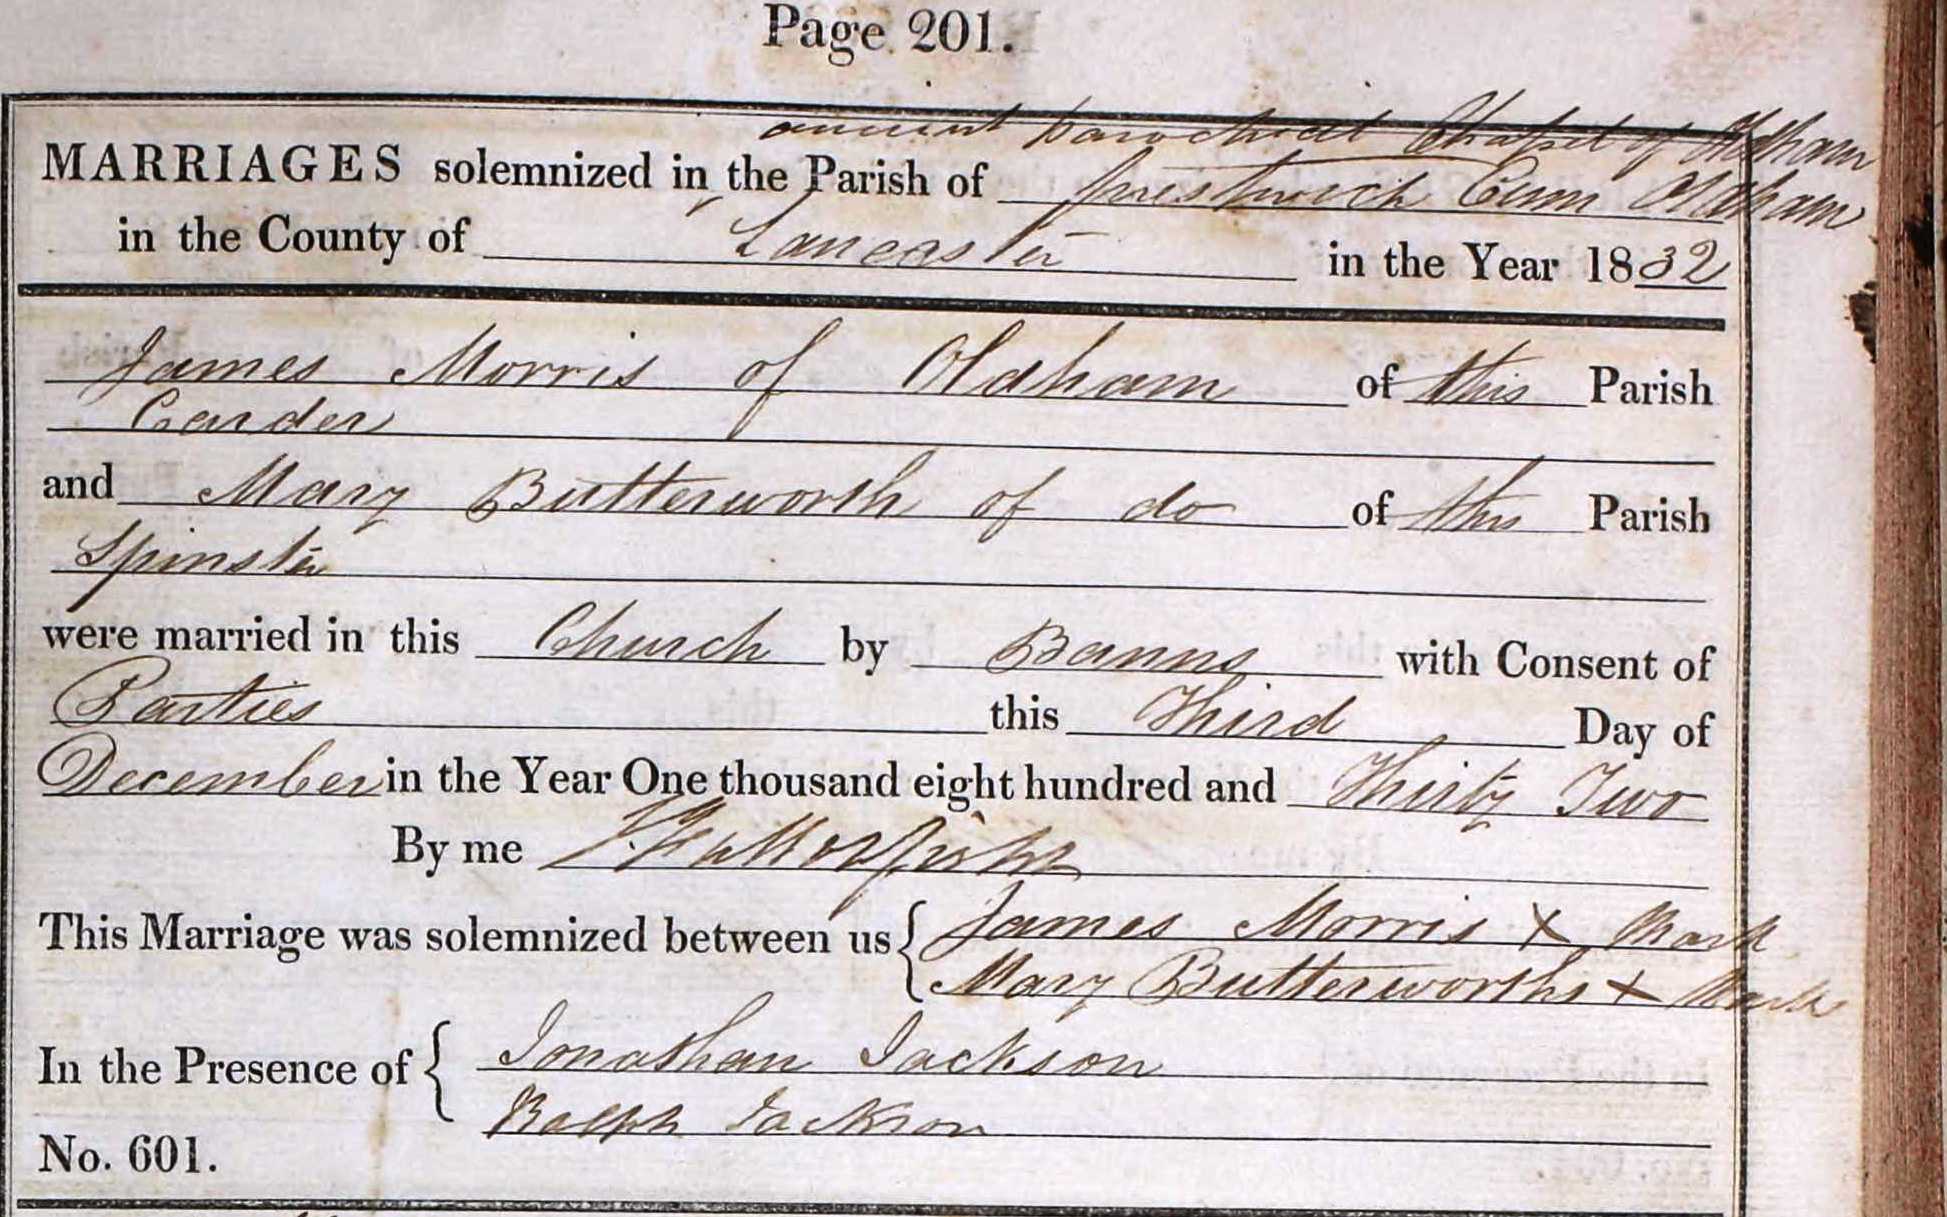 Page 201.
ancient parochial Chapel of Oldham
MARRIAGES solemnized in the Parish of Prestwich Cum Oldham
in the County of Lancaster in the Year 1832
James Morris of Oldham of this Parish
Carder
and Mary Butterworth of do of this Parish
Spinster
were married in this Church by Banns with Consent of
Parties this Third Day of
December in the Year One thousand eight hundred and Thirty Two
By me
This Marriage was solemnized between us { James Morris X Mark
Mary Butterworths X Mark
In the Presence of { Jonathan Jackson
Ralph Jackson
No. 601.